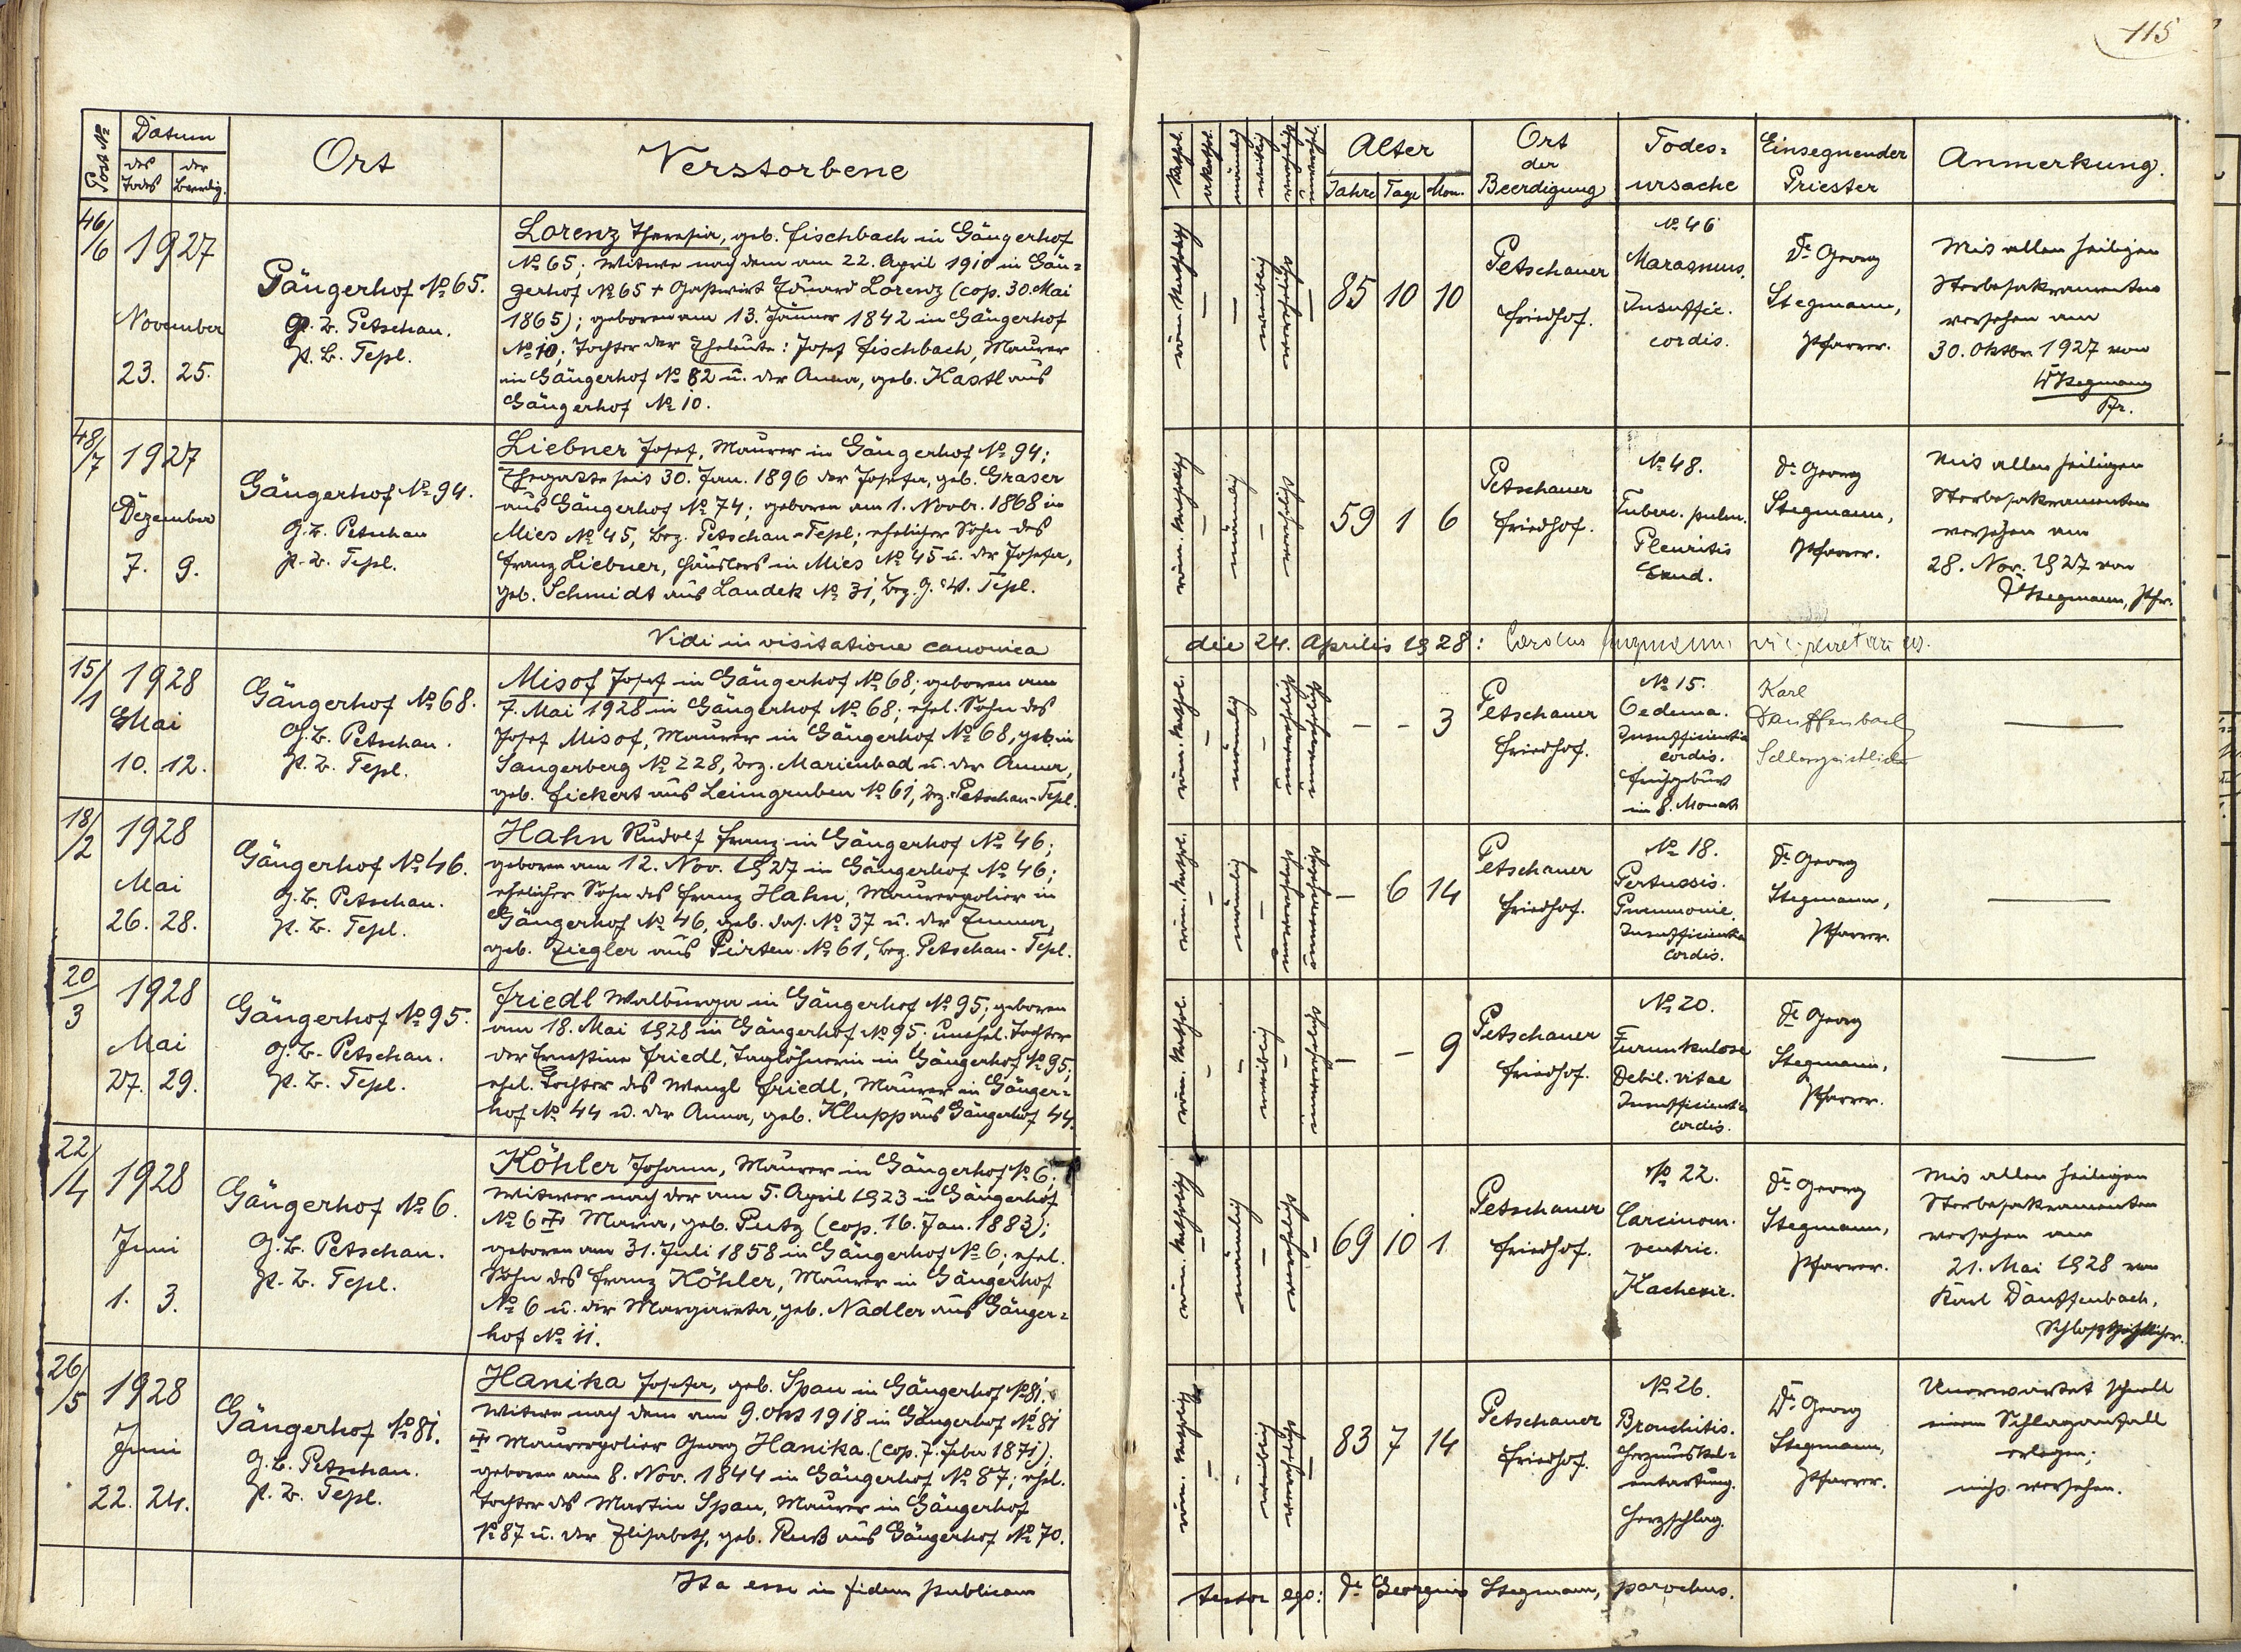 115
Post №
Datum
des Todes
der Beerdig.
Ort
Verstorbene
kathol.
akathol.
männlich
weiblich
verehelicht
unverehel.
Alter
Jahre Tage Mon.
Ort der Beerdigung
Todes-ursache
Einsegnender Priester
Anmerkung.
46/6
1927
November
23. 25.
Gängerhof № 65.
G. B. Petschau.
p. B. Tepl.
Lorenz Theresia, geb. Fischbach in Gängerhof
№ 65; Witwe nach dem am 22. April 1910 in Gän-
gerhof № 65 + Gastwirt Eduard Lorenz (cop. 30. Mai
1865); geboren am 13. Jänner 1842 in Gängerhof
№ 10; Tochter der Eheleute: Josef Fischbach, Maurer
in Gängerhof № 82 u. der Anna, geb. Kastl aus
Gängerhof № 10.
röm. katholisch
–
–
weiblich
verehelicht
–
85 10 10
Petschauer
Friedhof.
№ 46
Marasmus.
Insuffic.
cordis.
Dr Georg
Stegmann,
Pfarrer.
Mit allen heiligen
Sterbesakramenten
versehen am
30. Oktbr. 1927 von
Dr Stegmann
Pfr.
48/7
1927
Dezember
7. 9.
Gängerhof № 94.
G. B. Petschau
p. B. Tepl.
Liebner Josef, Maurer in Gängerhof № 94;
Ehegatte seit 30. Jan. 1896 der Josefa, geb. Graser
aus Gängerhof № 74; geboren am 1. Novbr. 1868 in
Mies № 45, Bez. Petschau-Tepl; ehelicher Sohn des
Franz Liebner, Häuslers in Mies № 45 u. der Josefa,
geb. Schmidt aus Landek № 31, Bez. G. u. p. Tepl.
röm. katholisch
–
männlich
–
verehelicht
59 1 6
Petschauer
Friedhof.
№ 48.
Tuberc. pulm.
Pleuritis
Exud.
Dr Georg
Stegmann,
Pfarrer.
Mit allen heiligen
Sterbesakramenten
versehen am
28. Nov. 1927 von
Dr Stegmann, Pfr.
Vidi in visitatione canonica die 24. Aprilis 1928: Carolus
15/1
1928
Mai
10. 12.
Gängerhof № 68.
G. B. Petschau.
p. B. Tepl.
Misof Josef in Gängerhof № 68; geboren am
7. Mai 1928 in Gängerhof № 68; ehel. Sohn des
Josef Misof, Maurer in Gängerhof № 68, geb. in
Sangerberg № 228, Bez. Marienbad u. der Anna,
geb. Fickert aus Leimgruben № 61, Bez. Petschau-Tepl.
röm. kathol.
–
männlich
–
unverehelicht
– – 3
Petschauer
Friedhof.
№ 15.
Oedema.
Insufficientia
cordis.
Frühgeburt
im 8. Monat
Karl
Dauffenbach
Schlossgeistlicher
18/2
1928
Mai
26. 28.
Gängerhof № 46.
G. B. Petschau.
p. B. Tepl.
Hahn Rudolf Franz in Gängerhof № 46;
geboren am 12. Nov. 1927 in Gängerhof № 46;
ehelicher Sohn des Franz Hahn, Maurerpolier in
Gängerhof № 46, geb. das. № 37 u. der Emma,
geb. Ziegler aus Pirten № 61, Bez. Petschau-Tepl.
röm. kathol.
–
männlich
–
unverehelicht
– 6 14
Petschauer
Friedhof.
№ 18.
Pertussis.
Pneumonie.
Insufficientia
cordis.
Dr Georg
Stegmann,
Pfarrer.
20/3
1928
Mai
27. 29.
Gängerhof № 95.
G. B. Petschau.
p. B. Tepl.
Friedl Walburga in Gängerhof № 95; geboren
am 18. Mai 1928 in Gängerhof № 95; unehel. Tochter
der Ernestine Friedl, Taglöhnerin in Gängerhof № 95,
ehel. Tochter des Wenzl Friedl, Maurer in Gänger-
hof № 44 u. der Anna, geb. Klupp aus Gängerhof 44.
röm. kathol.
–
–
weiblich
–
unverehelicht
– – 9
Petschauer
Friedhof.
№ 20.
Furunkulose
Debil. vitae
Insufficientia
cordis.
Dr Georg
Stegmann,
Pfarrer.
22/4
1928
Juni
1. 3.
Gängerhof № 6.
G. B. Petschau.
p. B. Tepl.
Köhler Johann, Maurer in Gängerhof № 6;
Witwer nach der am 5. April 1923 in Gängerhof
№ 6 + Maria, geb. Putz (cop. 16. Jan. 1883);
geboren am 31. Juli 1858 in Gängerhof № 6; ehel.
Sohn des Franz Köhler, Maurer in Gängerhof
№ 6 u. der Margareta, geb. Nadler aus Gänger-
hof № 11.
röm. katholisch
–
männlich
–
verehelicht
–
69 10 1
Petschauer
Friedhof.
№ 22.
Carcinom.
ventric.
Kachexie.
Dr Georg
Stegmann,
Pfarrer.
Mit allen heiligen
Sterbesakramenten
versehen am
21. Mai 1928 von
Karl Dauffenbach,
Schloßgeistlicher.
26/5
1928
Juni
22. 24.
Gängerhof № 81.
G. B. Petschau.
p. B. Tepl.
Hanika Josefa, geb. Span in Gängerhof № 81;
Witwe nach dem am 9. Okt 1918 in Gängerhof № 81
+ Maurerpolier Georg Hanika (cop. 7. Feber 1871);
geboren am 8. Nov. 1844 in Gängerhof № 87; ehel.
Tochter des Martin Span, Maurer in Gängerhof
№ 87 u. der Elisabeth, geb. Ruß aus Gängerhof № 70.
röm. katholisch
–
–
weiblich
verehelicht
–
83 7 14
Petschauer
Friedhof.
№ 26.
Bronchitis.
Herzmuskel-
entartung.
Herzschlag.
Dr Georg
Stegmann,
Pfarrer.
Unerwartet schnell
einem Schlaganfall
erlegen;
nicht versehen.
Ita esse in fidem publicam testor ego: Dr Georgius Stegmann, parochus.